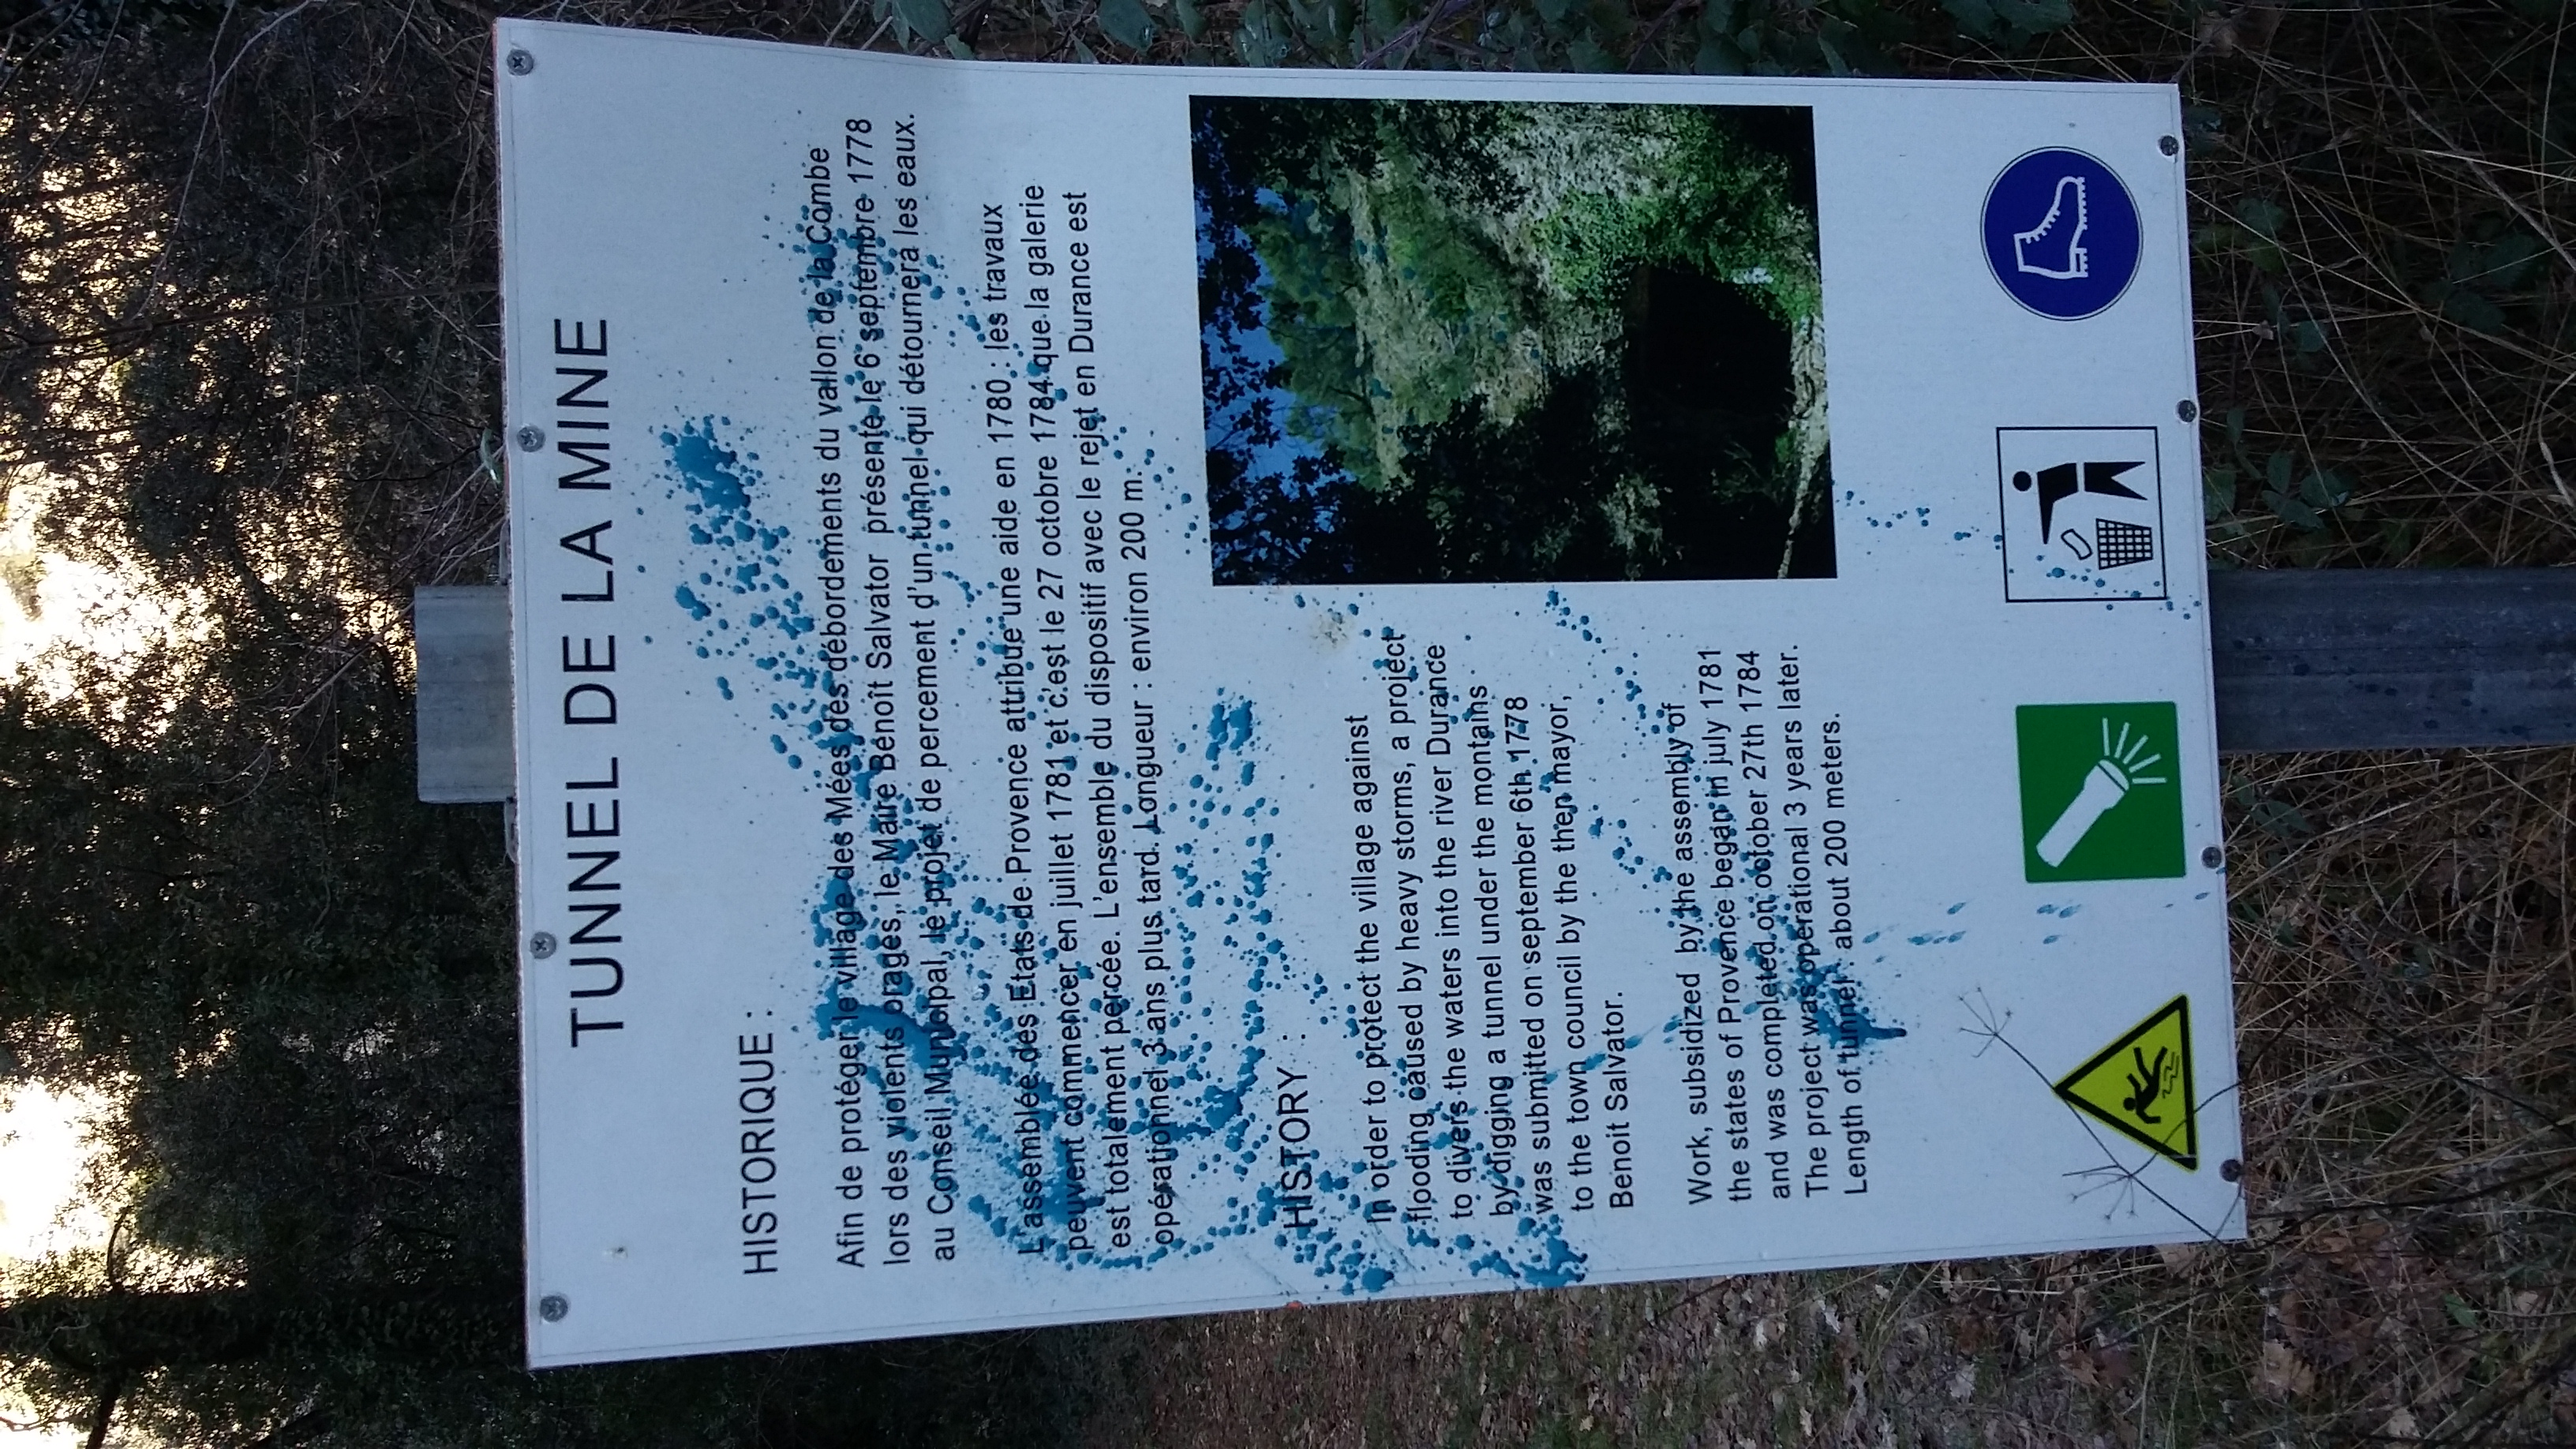 TUNNEL DE LA MINE
HISTORIQUE :
Afin de protéger le village des Mées des débordements du vallon de la Combe
lors des violents orages, le Maire Bénoît Salvator présente le 6 septembre 1778
au Conseil Municipal, le projet de percement d'un tunnel qui détournera les eaux.
L'assemblée des Etats de Provence attribue une aide en 1780 ; les travaux
peuvent commencer en juillet 1781 et c'est le 27 octobre 1784 que la galerie
est totalement percée. L'ensemble du dispositif avec le rejet en Durance est
opérationnel 3 ans plus tard. Longueur : environ 200 m.
HISTORY :
In order to protect the village against
flooding caused by heavy storms, a project
to divers the waters into the river Durance
by digging a tunnel under the montains
was submitted on september 6th 1778
to the town council by the then mayor,
Benoit Salvator.
Work, subsidized by the assembly of
the states of Provence began in july 1781
and was completed on october 27th 1784
The project was operational 3 years later.
Length of tunnel : about 200 meters.